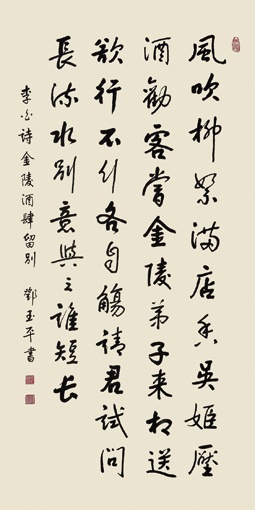 風吹柳絮滿店香吳姬壓
酒勸客嘗金陵弟子來相送
欲行不行各自觴請君試問
長流水別意與之誰短长
李白詩金陵酒肆留別 鄧玉平書